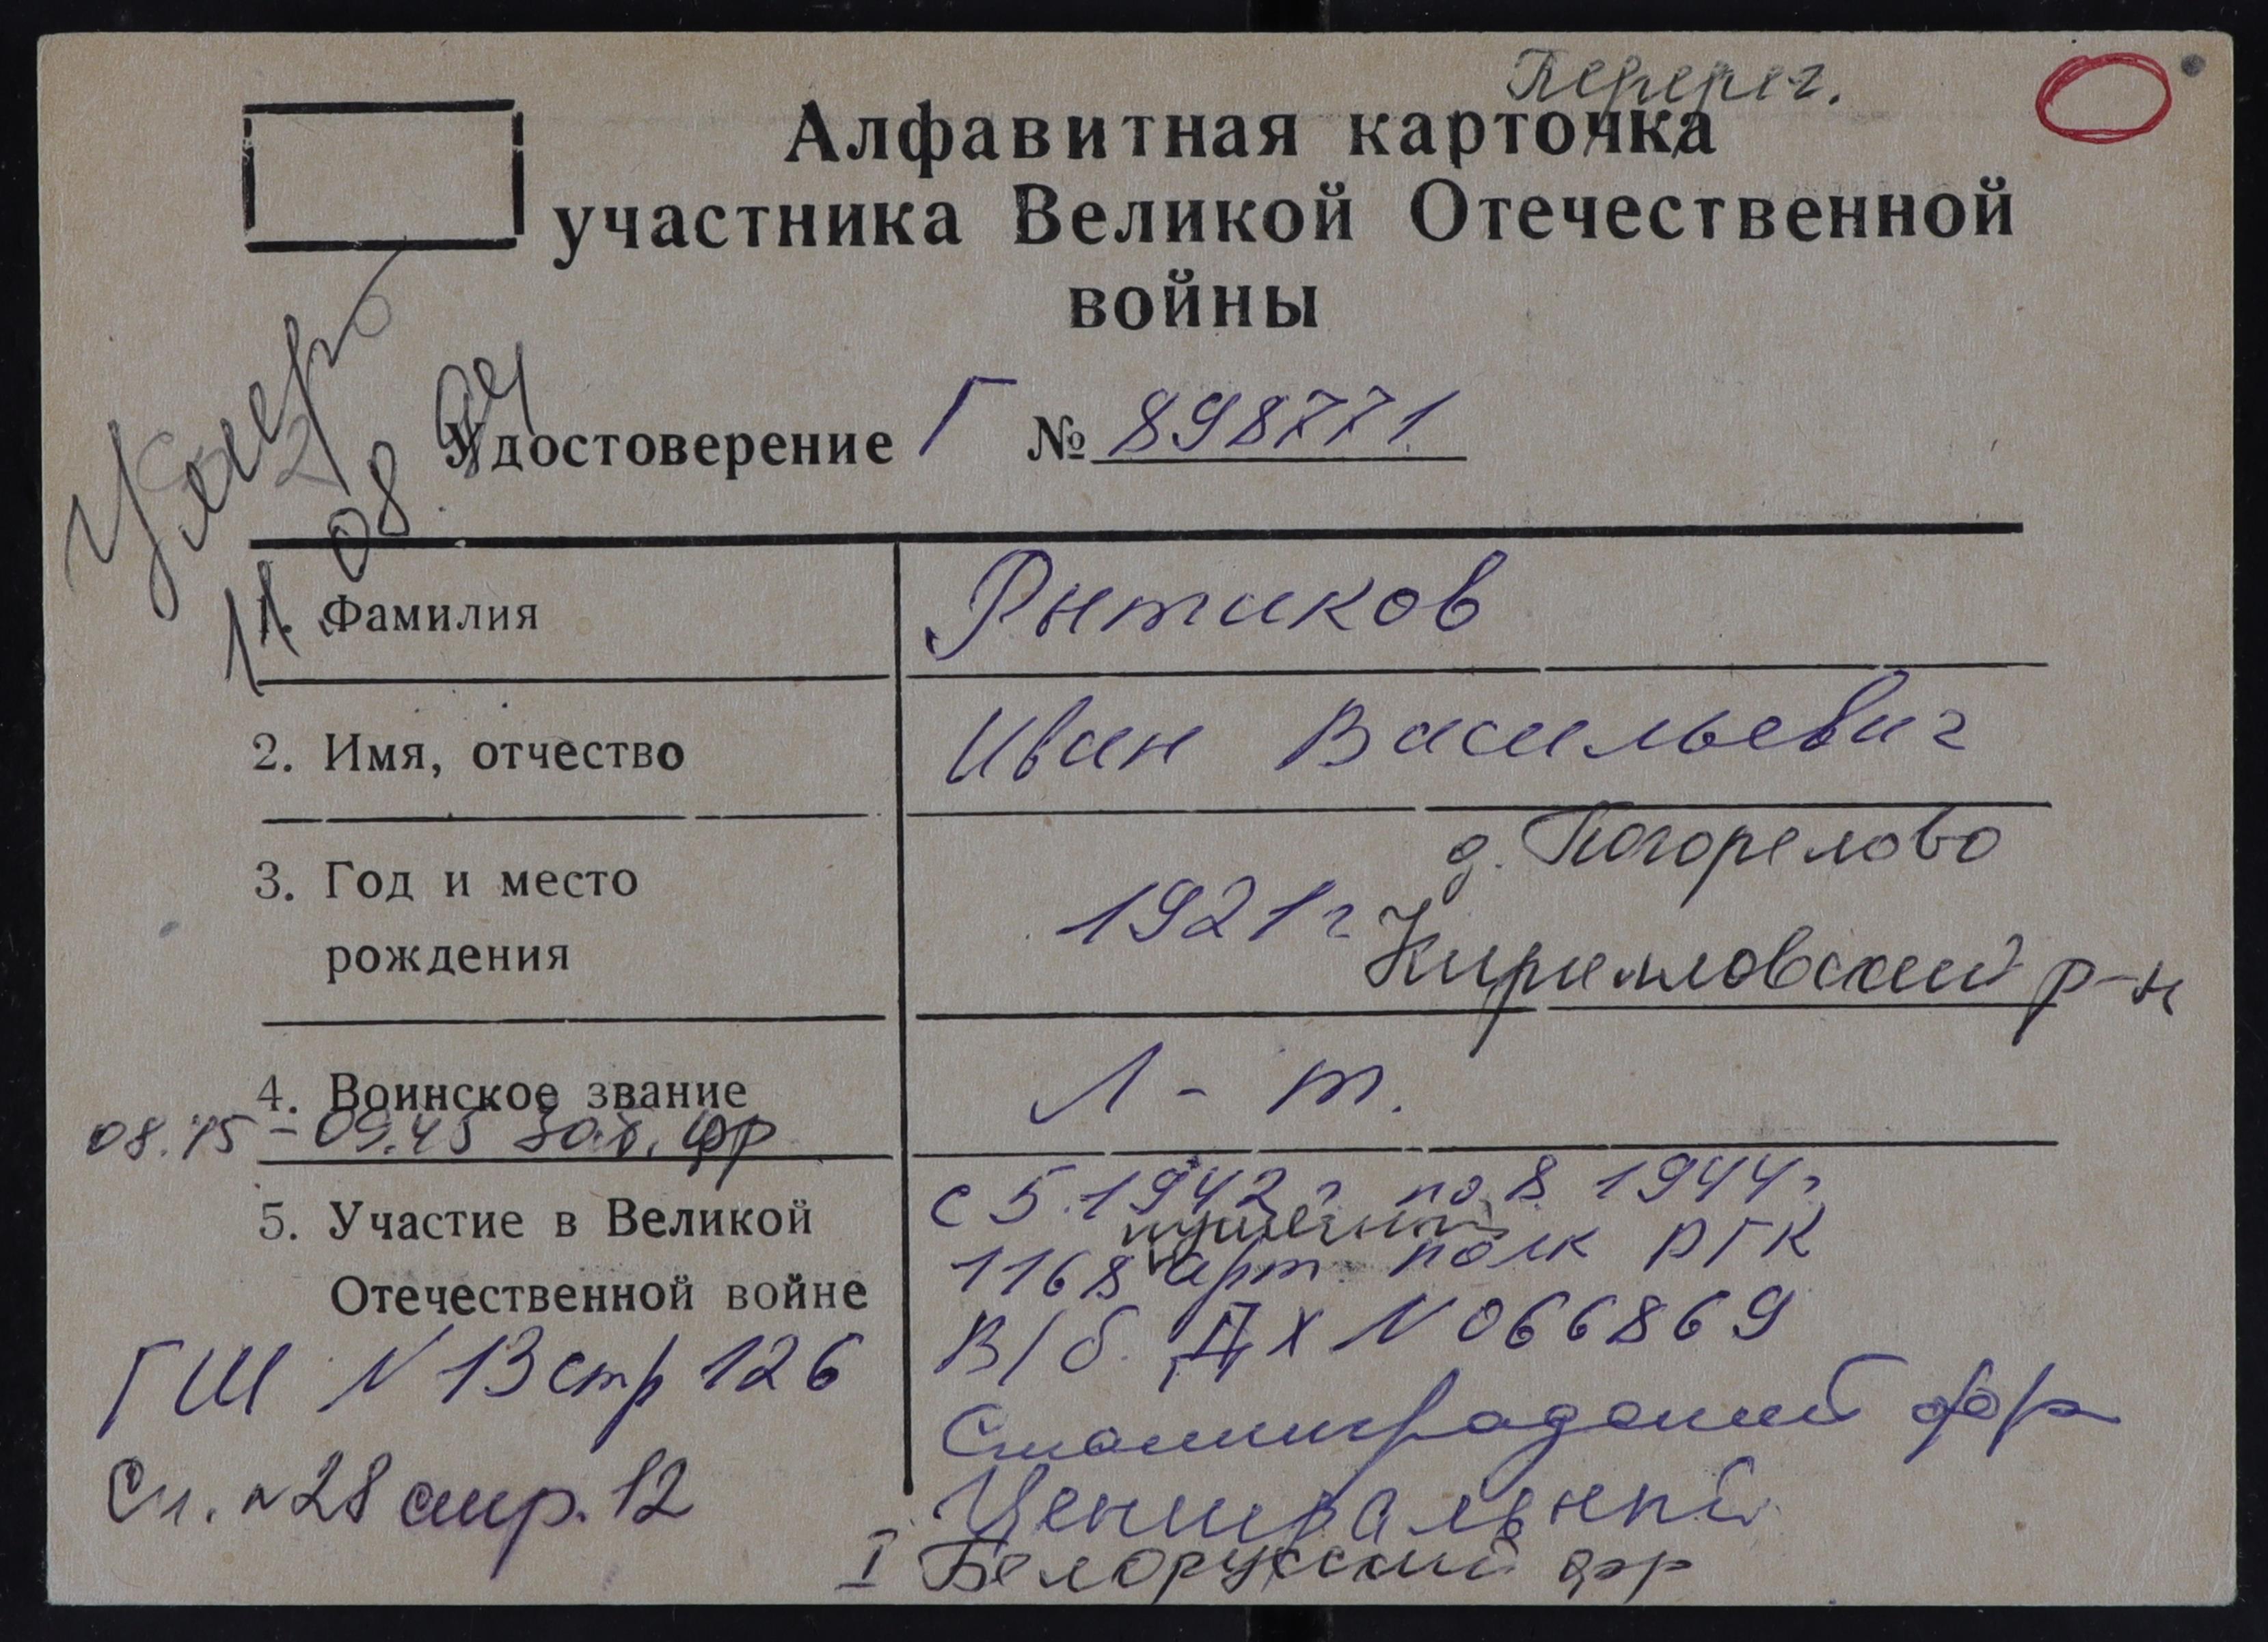 Перерег.
Алфавитная карточка
участника Великой Отечественной
войны
Умер
11.08.94
Удостоверение Г № 898771
1. Фамилия Рытиков
2. Имя, отчество Иван Васильевич
3. Год и место рождения 1921 г д. Погорелово
Кирилловский р-н
4. Воинское звание Л-т.
08.45 - 09.45 Заб. фр
5. Участие в Великой Отечественной войне с 5.1942 г по 8 1944 г
пушечный
1168 арт полк РГК
В/б. ДХ N 066869
ГШ N 13 стр 126
Сталинградский фр
Сп. N 28 стр. 12
Центральный
I Белорусский фр